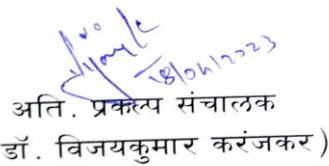 18/04/2023
अति. प्रकल्प संचालक
डॉ. विजयकुमार करंजकर)